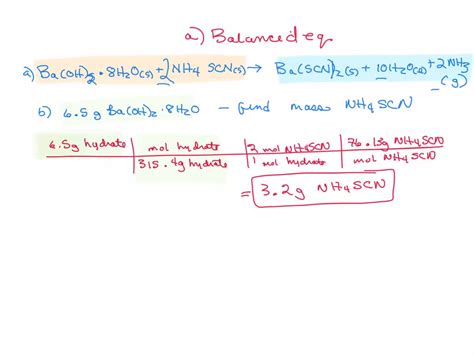 a) Balanced eq
a) Ba(OH)2 · 8H2O(s) + 2NH4 SCN(s) → Ba(SCN)2(s) + 10H2O(l) + 2NH3(g)
b) 6.5 g Ba(OH)2 · 8H2O – find mass NH4 SCN
6.5g hydrate | mol hydrate | 2 mol NH4SCN | 76.13g NH4SCN
315.4g hydrate | 1 mol hydrate | mol NH4SCN
= 3.2g NH4SCN